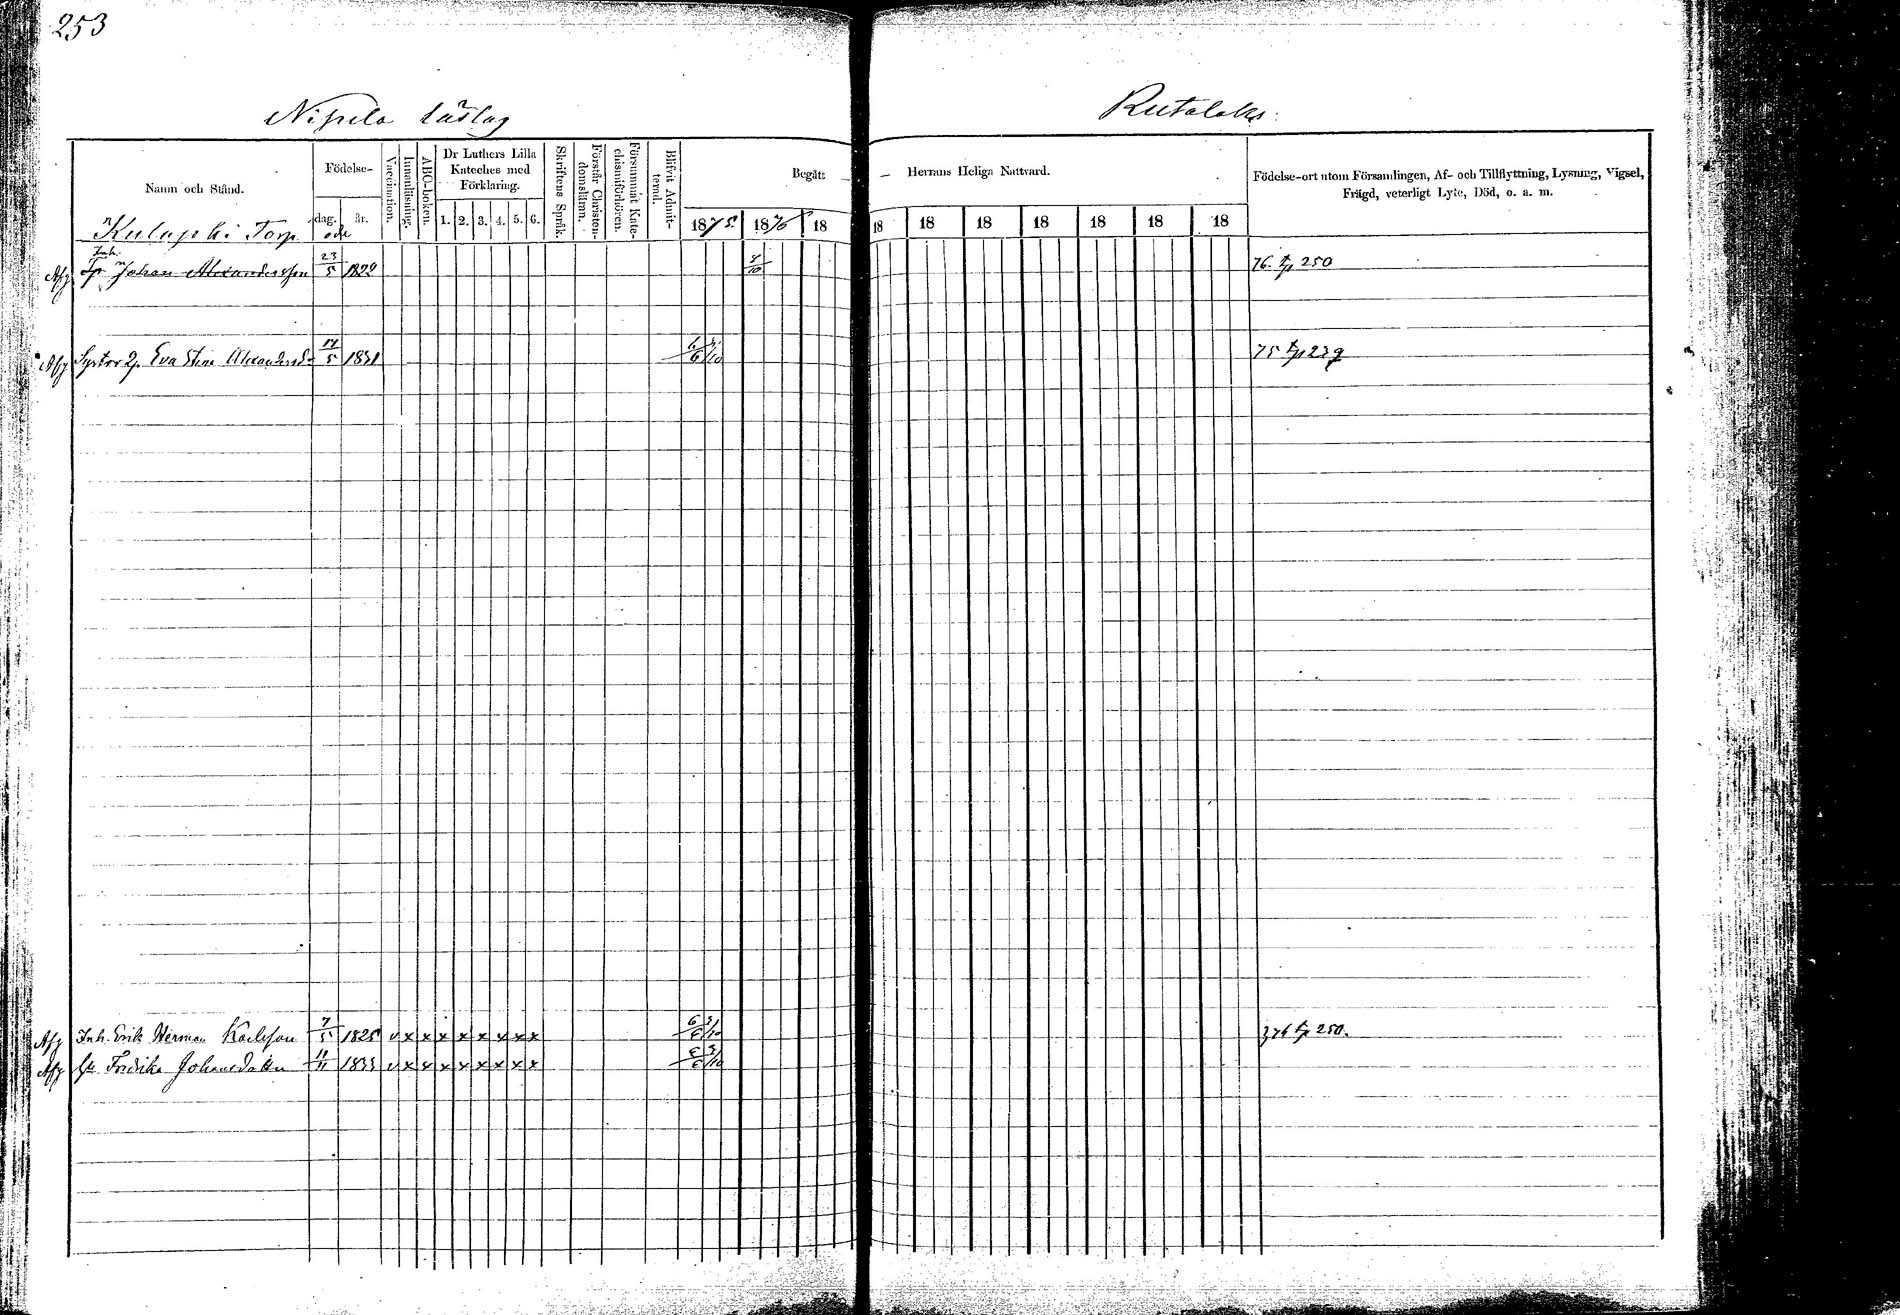 253
Nissela läslag
Rutalaks
Namn och Stånd.
Födelse-
dag.
år.
Vaccination.
Innanläsning.
ABC-boken.
Dr Luthers Lilla Kateches med Förklaring.
1. 2. 3. 4. 5. 6.
Skriftens Språk.
Förstår Christendomsläran.
Försummat Katechismiförhören.
Blifvit Admitterad.
Begått — Herrans Heliga Nattvard.
1875. 1876 18 18 18 18 18 18 18 18
Födelse-ort utom Församlingen, Af- och Tillflyttning, Lysning, Vigsel,
Frägd, veterligt Lyte, Död, o. a. m.
Torp
öde
Inh.
Johan Alexandersson 23/5 1829 8/10 76. 250
Eva Stina Alexandersd. 1831 75 239
Inh. Erik Herman Karlsson 7/5 1825 v x x x x x x x x 376 250.
Fredrika Johansdotter 11/11 1833 v x x x x x x x x